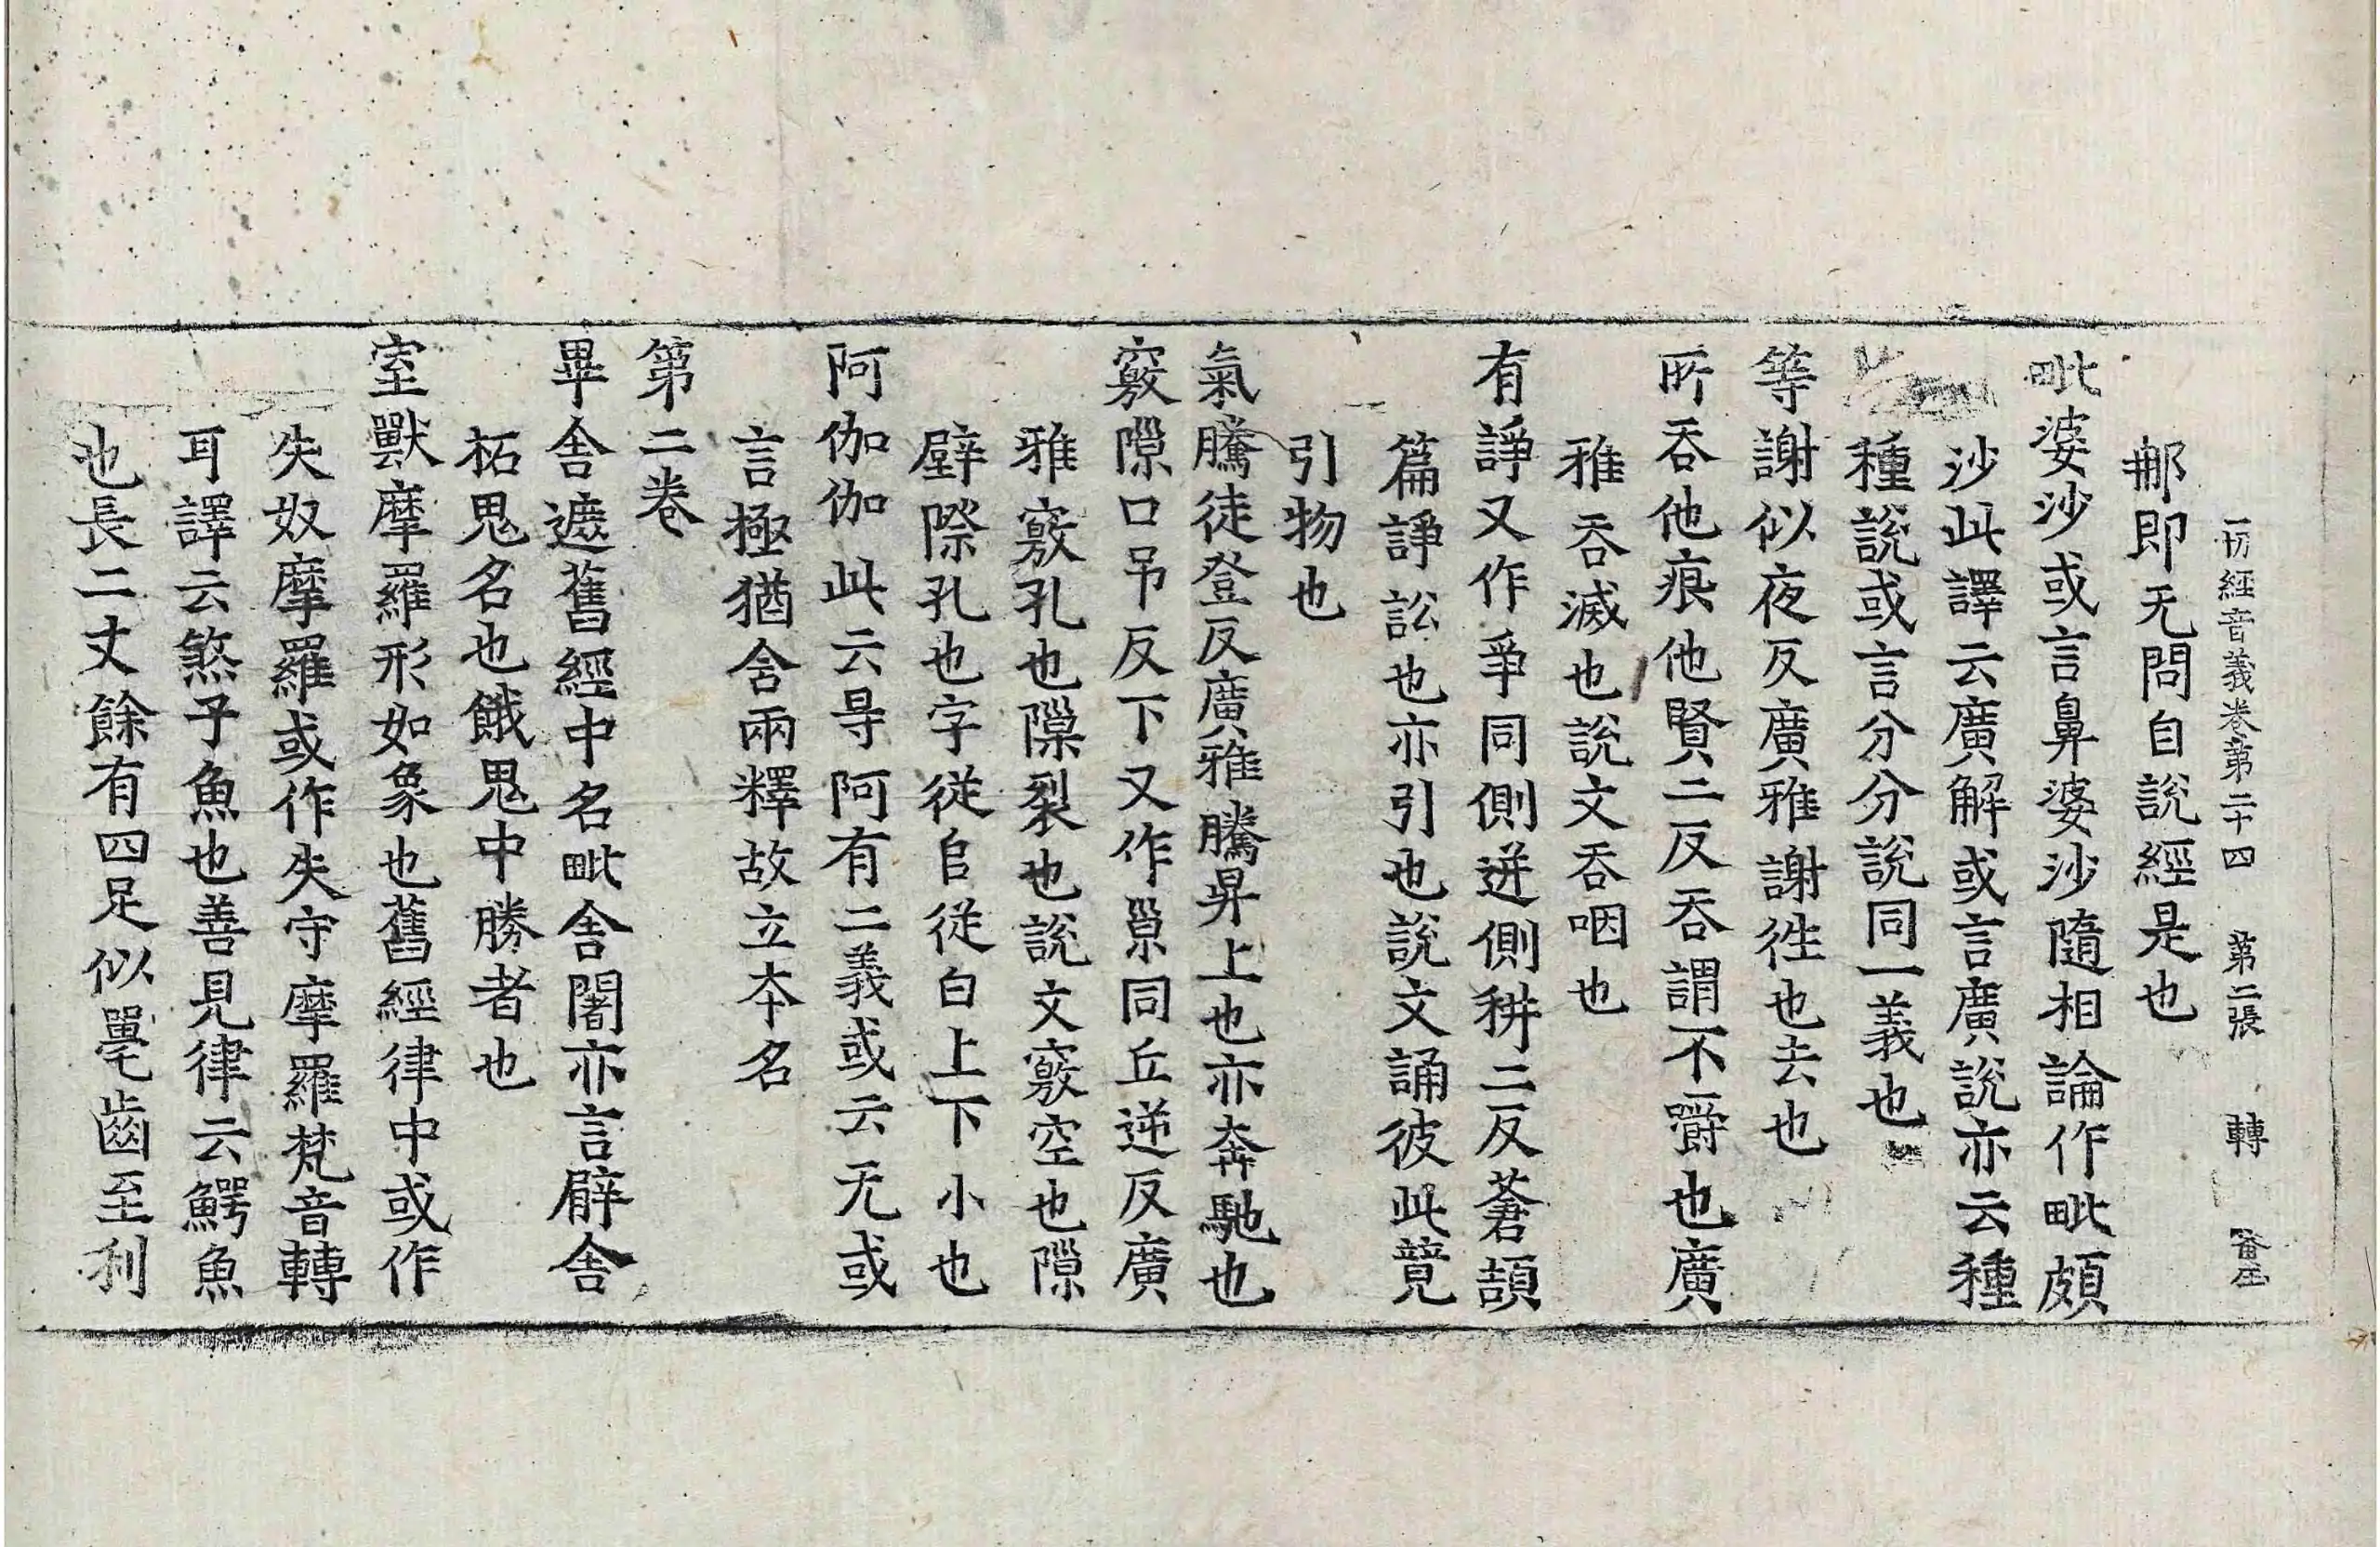 一切經音義卷第二十四 第二張 轉
那即无問自說經是也
毗婆沙或言鼻婆沙隨相論作毗頗
沙此譯云廣解或言廣說亦云種
種說或言分分說同一義也
等謝似夜反廣雅謝徃也去也
所吞他痕他賢二反吞謂不嚼也廣
雅吞滅也說文吞咽也
有諍又作爭同側迸側耕二反蒼頡
篇諍訟也亦引也說文誦彼此竟
引物也
氣騰徒登反廣雅騰昇上也亦奔馳也
竅隙口吊反下又作𡭴同丘逆反廣
雅竅孔也隟裂也說文竅空也隙
壁際孔也字從𨸏從白上下小也
阿伽伽此云㝵阿有二義或云无或
言極猶含兩釋故立夲名
第二卷
畢舍遮舊經中名毗舍闍亦言臂舍
柘鬼名也餓鬼中勝者也
室獸摩羅形如象也舊經律中或作
失奴摩羅或作失守摩羅梵音轉
耳譯云煞子魚也善見律云鰐魚
也長二丈餘有四足似鼉齒至利